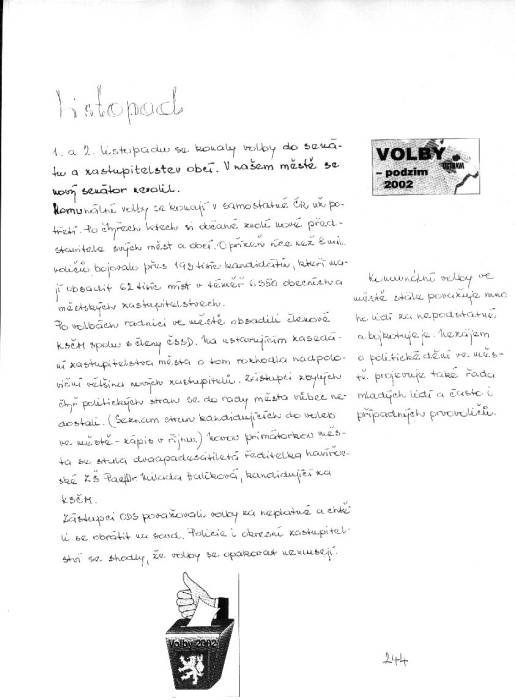 Listopad
1. a 2. listopadu se konaly volby do sená-
tu a zastupitelstev obcí. V našem městě se
nový senátor nevolil.
Komunální volby se konají v samostatné ČR už po-
třetí. Po čtyřech letech si občané zvolí nové před-
stavitele svých měst a obcí. O přízeň více než 8 mil.
voličů bojovalo přes 193 tisíc kandidátů, kteří ma-
jí obsadit 62 tisíc míst v téměř 6350 obecních a
městských zastupitelstvech.
Po volbách radnici ve městě obsadili členové
KSČM spolu s členy ČSSD. Na ustavujícím zasedá-
ní zastupitelstva města o tom rozhodla nadpolo-
viční většina nových zastupitelů. Zástupci zbylých
čtyř politických stran se do rady města vůbec ne-
dostali. (Seznam stran kandidujících do voleb
ve městě - zápis v říjnu.) Novou primátorkou měs-
ta se stala dvaapadesátiletá ředitelka havířov-
ské ZŠ PaedDr. Milada Halíková, kandidující za
KSČM.
Zástupci ODS považovali volby za neplatné a chtě-
li se obrátit na soud. Policie i okresní zastupitel-
ství se shodly, že volby se opakovat nemusejí.
VOLBY
OSTRAVA
– podzim
2002
Komunální volby ve
městě stále považuje mno-
ho lidí za nepodstatné
a bojkotuje je. Nezájem
o politické dění ve měs-
tě projevuje také řada
mladých lidí a často i
případných prvovoličů.
Volby 2002
244